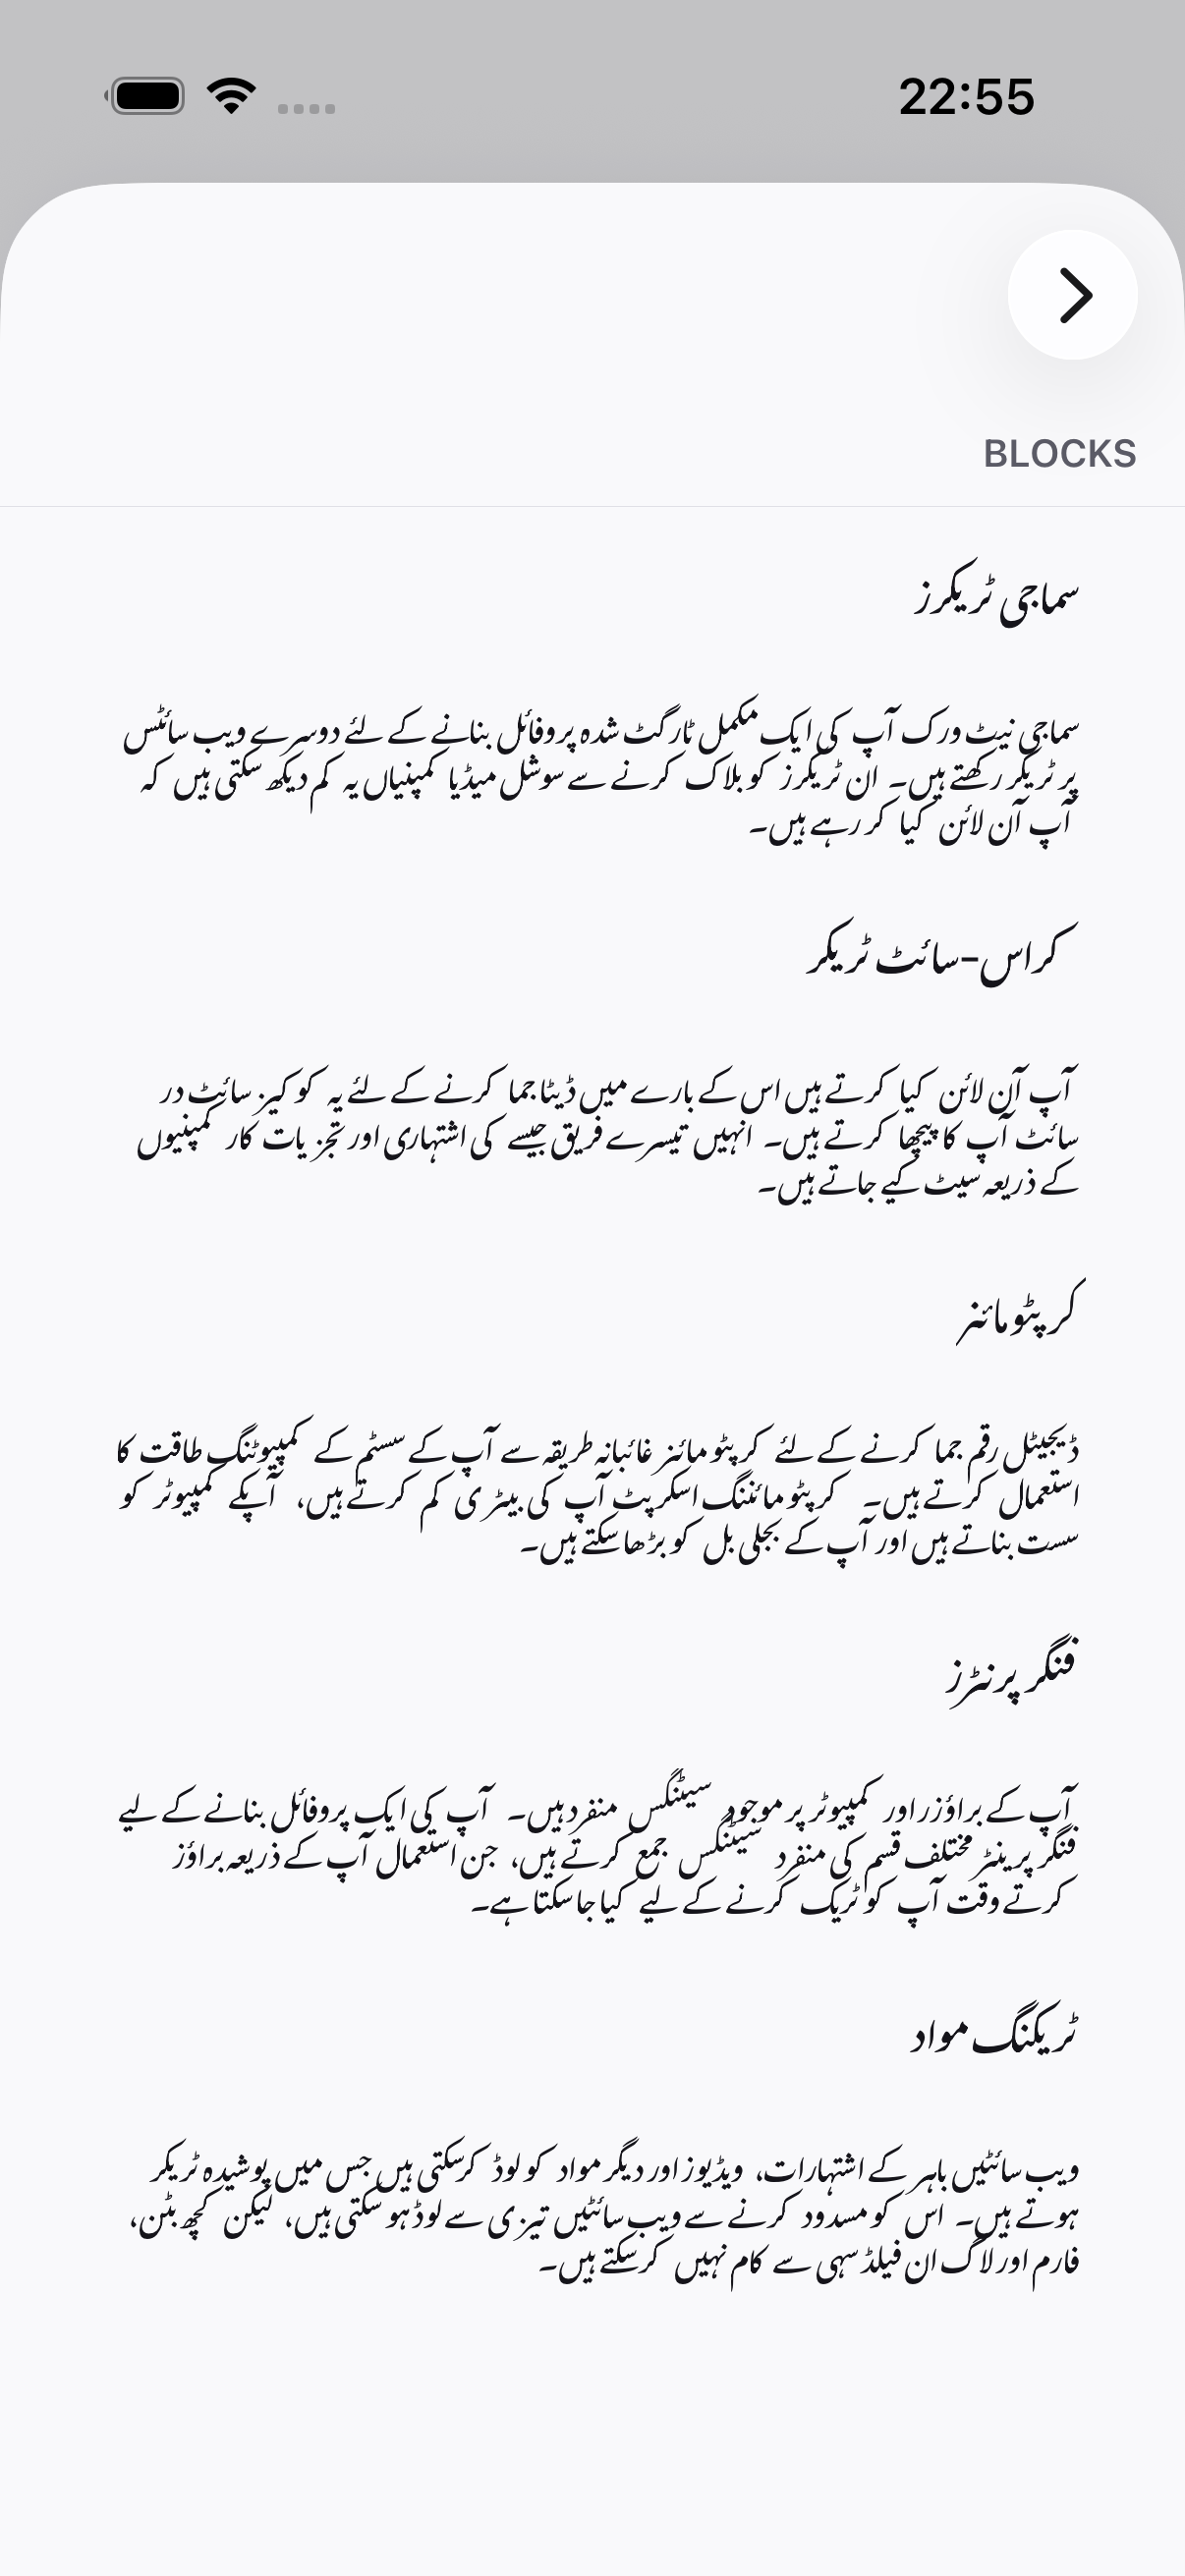 22:55
BLOCKS
سماجی ٹریکرز
سماجی نیٹ ورک آپ کی ایک مکمل ٹارگٹ شدہ پروفائل بنانے کے لئے دوسرے ویب سائٹس
پر ٹریکر رکھتے ہیں۔ ان ٹریکرز کو بلاک کرنے سے سوشل میڈیا کمپنیاں یہ کم دیکھ سکتی ہیں کہ
آپ آن لائن کیا کر رہے ہیں۔
کراس-سائٹ ٹریکر
آپ آن لائن کیا کرتے ہیں اس کے بارے میں ڈیٹا جما کرنے کے لئے یہ کوکیز سائٹ در
سائٹ آپ کا پیچھا کرتے ہیں۔ انہیں تیسرے فریق جیسے کی اشتہاری اور تجزیات کار کمپنیوں
کے ذریعہ سیٹ کیے جاتے ہیں۔
کرپٹومائنر
ڈیجیٹل رقم جما کرنے کے لئے کرپٹومائنز غائبانہ طریقہ سے آپ کے سسٹم کے کمپیوٹنگ طاقت کا
استعمال کرتے ہیں۔ کرپٹومائننگ اسکرپٹ آپ کی بیٹری کم کرتے ہیں، آپکے کمپیوٹر کو
سست بناتے ہیں اور آپ کے بجلی بل کو بڑھا سکتے ہیں۔
فنگر پرنٹرز
آپ کے براؤزر اور کمپیوٹر پر موجود سیٹنگس منفرد ہیں۔ آپ کی ایک پروفائل بنانے کے لیے
فنگر پرینٹر مختلف قسم کی منفرد سیٹنگس جمع کرتے ہیں، جن استعمال آپ کے ذریعہ براؤز
کرتے وقت آپ کو ٹریک کرنے کے لیے کیا جا سکتا ہے۔
ٹریکنگ مواد
ویب سائٹیں باہر کے اشتہارات، ویڈیوز اور دیگر مواد کو لوڈ کرسکتی ہیں جس میں پوشیدہ ٹریکر
ہوتے ہیں۔ اس کو مسدود کرنے سے ویب سائٹیں تیزی سے لوڈ ہو سکتی ہیں، لیکن کچھ بٹن،
فارم اور لاگ ان فیلڈ سہی سے کام نہیں کرسکتے ہیں۔